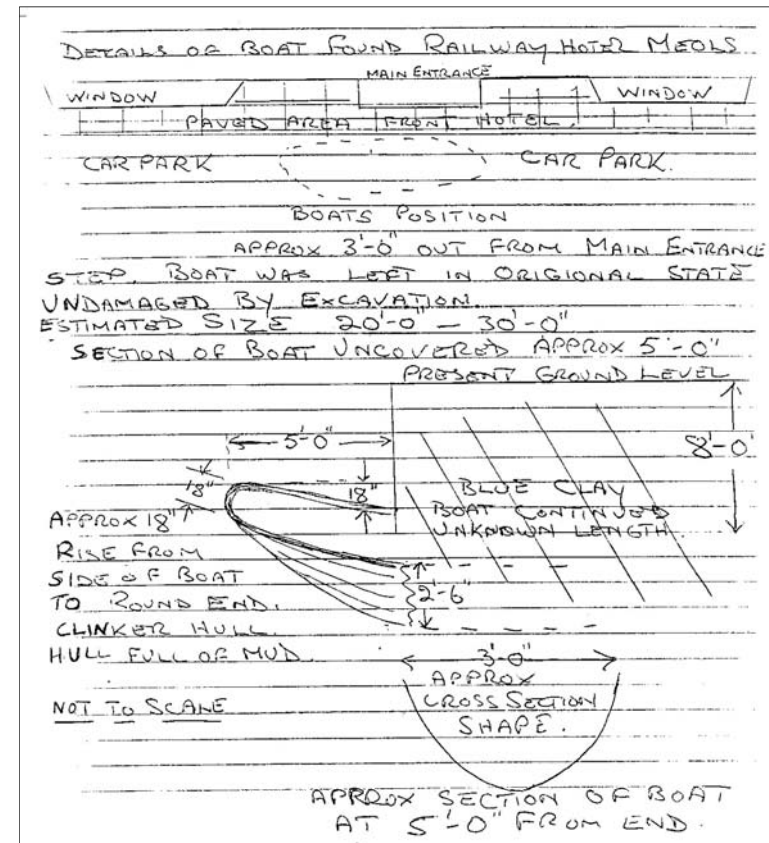 DETAILS OF BOAT FOUND RAILWAY HOTEL MEOLS
MAIN ENTRANCE
WINDOW WINDOW
PAVED AREA FRONT HOTEL.
CAR PARK CAR PARK.
BOATS POSITION
APPROX 3'-0" OUT FROM MAIN ENTRANCE
STEP. BOAT WAS LEFT IN ORIGIONAL STATE
UNDAMAGED BY EXCAVATION.
ESTIMATED SIZE 20'-0" — 30'-0"
SECTION OF BOAT UNCOVERED APPROX 5'-0"
PRESENT GROUND LEVEL
5'-0"
8'-0"
18"
18"
BLUE CLAY
BOAT CONTINUED
UNKNOWN LENGTH.
APPROX 18"
RISE FROM
SIDE OF BOAT
TO ROUND END.
CLINKER HULL.
HULL FULL OF MUD.
2'-6"
3'-0"
APPROX
CROSS SECTION
SHAPE.
NOT TO SCALE
APPROX SECTION OF BOAT
AT 5'-0" FROM END.